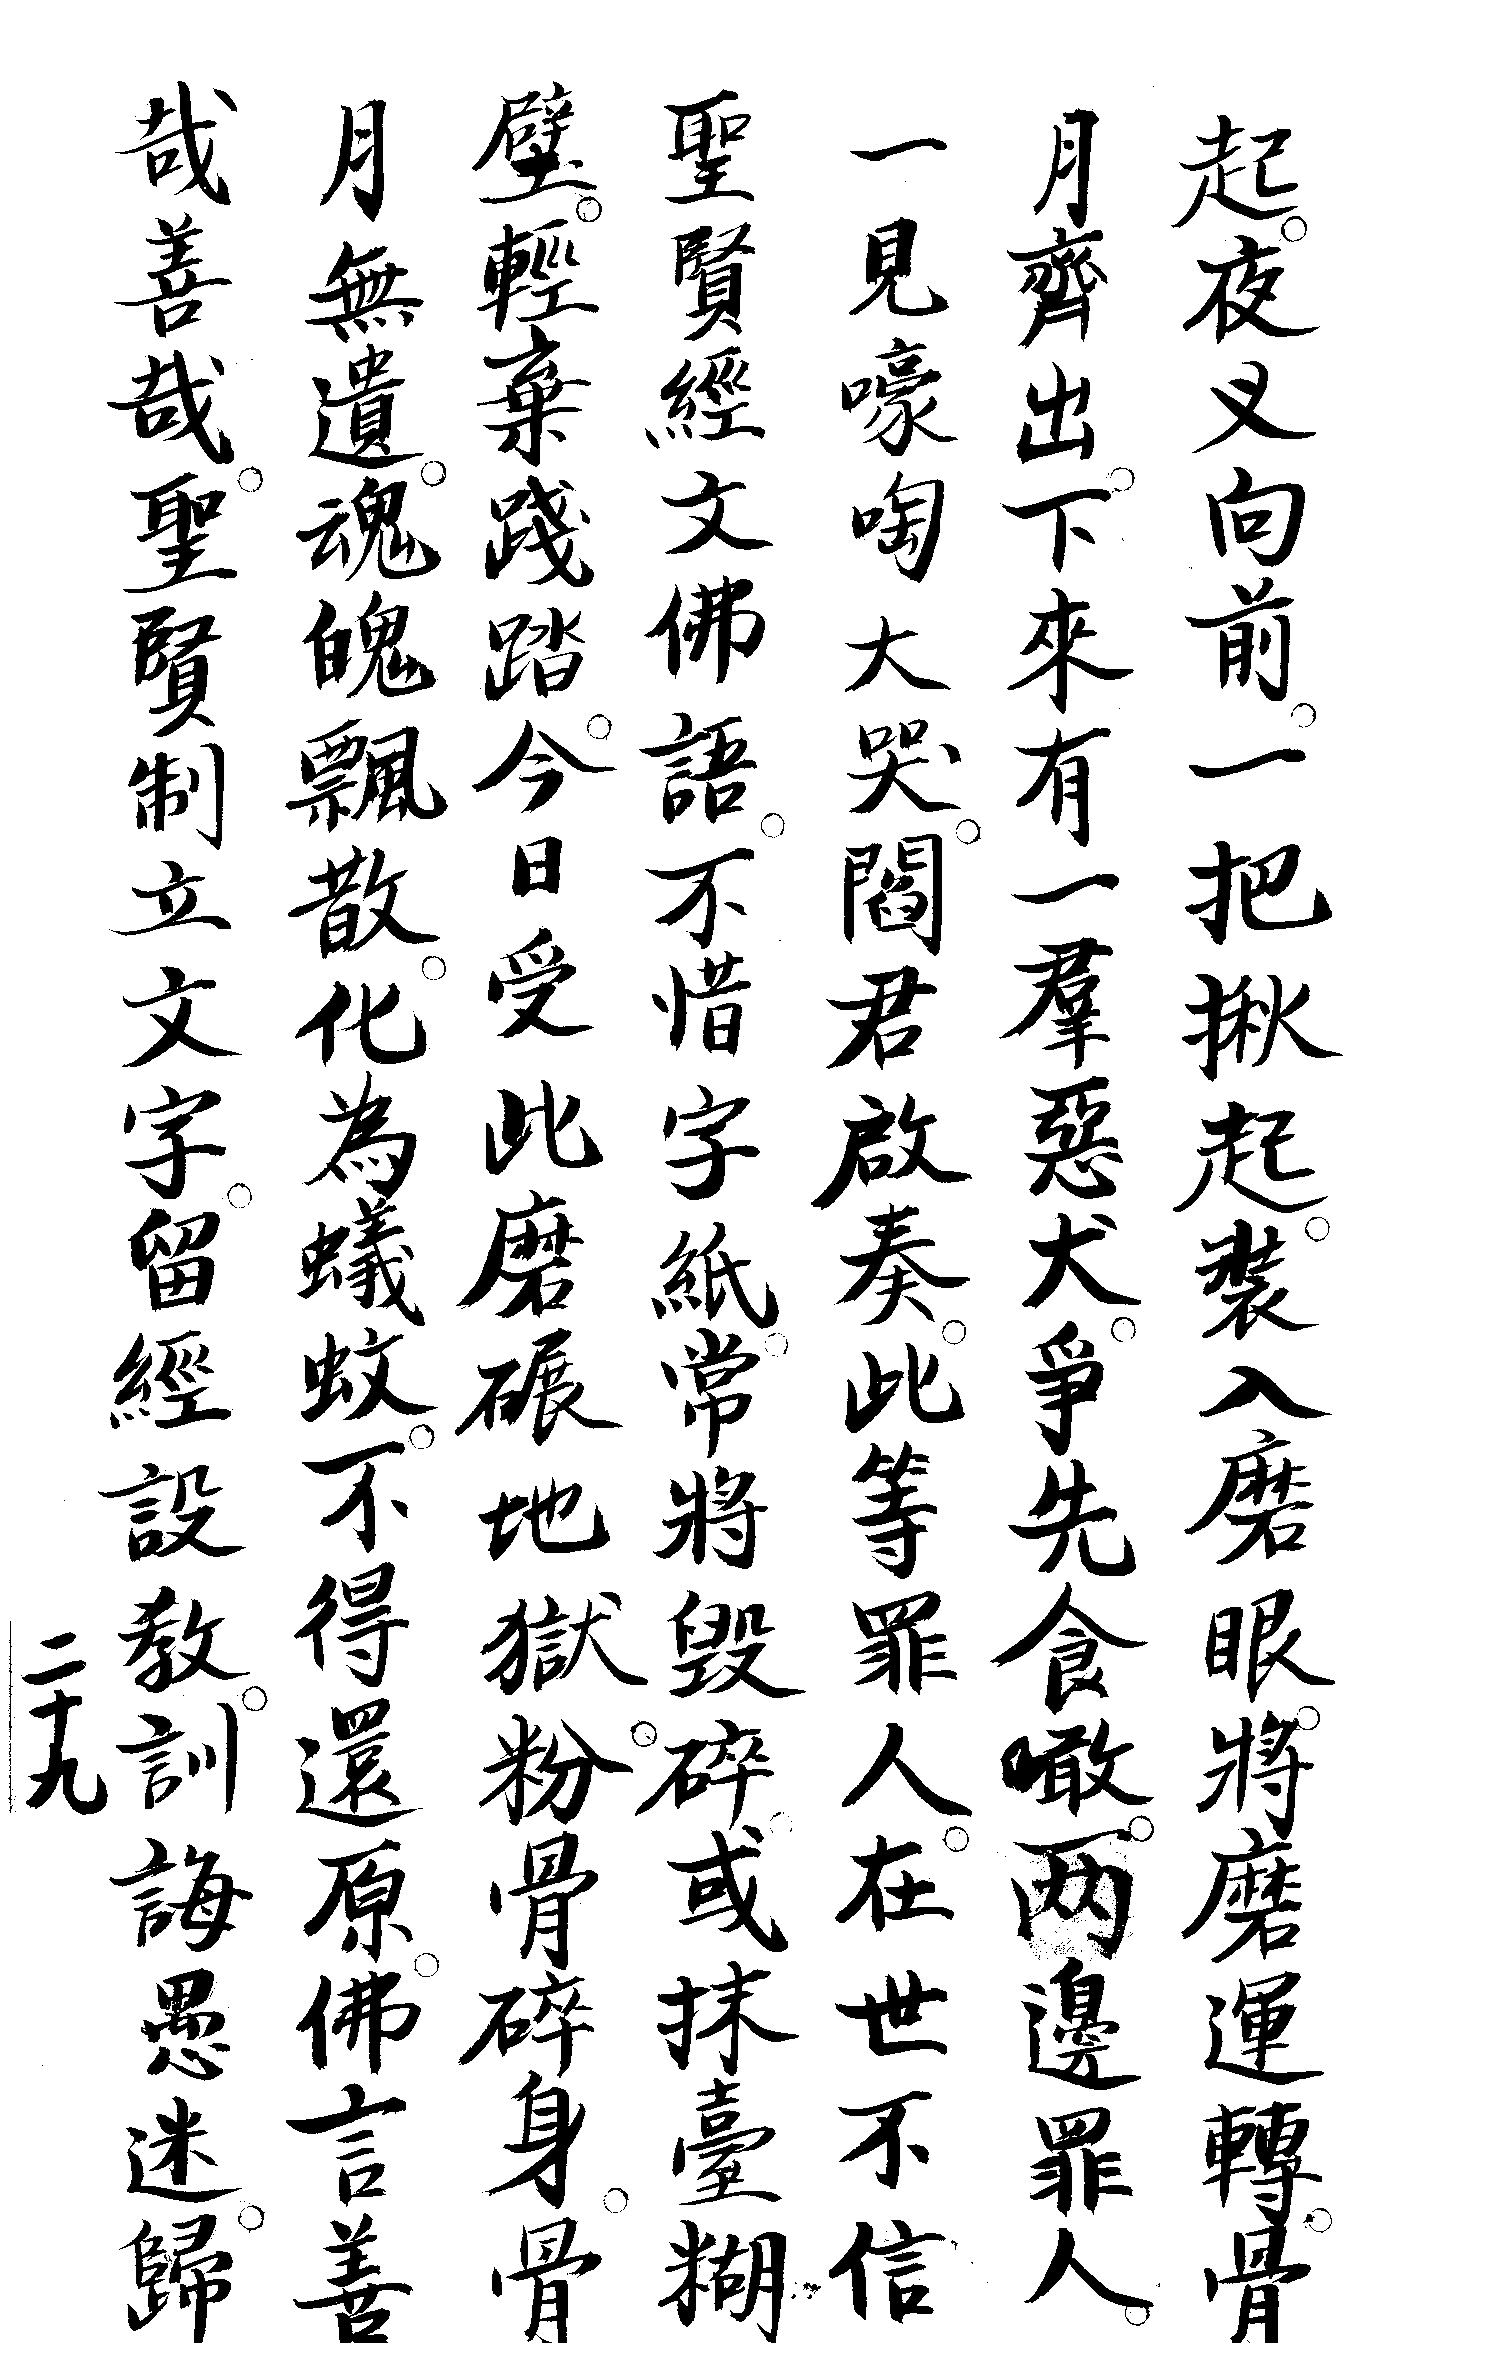 起。夜叉向前。一把揪起。裝入磨眼。將磨運轉。骨
月齊出。下來有一羣惡犬。爭先食噉。两邊罪人。
一見嚎啕大哭。閻君啟奏。此等罪人。在世不信
聖賢經文佛語。不惜字紙。常將毀碎。或抹臺糊
壁。輕棄踐踏。今日受此磨碾地獄。粉骨碎身。骨
月無遺。魂魄飄散。化為蟻蚊。不得還原。佛言善
哉善哉。聖賢制立文字。留經設教。訓誨愚迷。歸
二十九